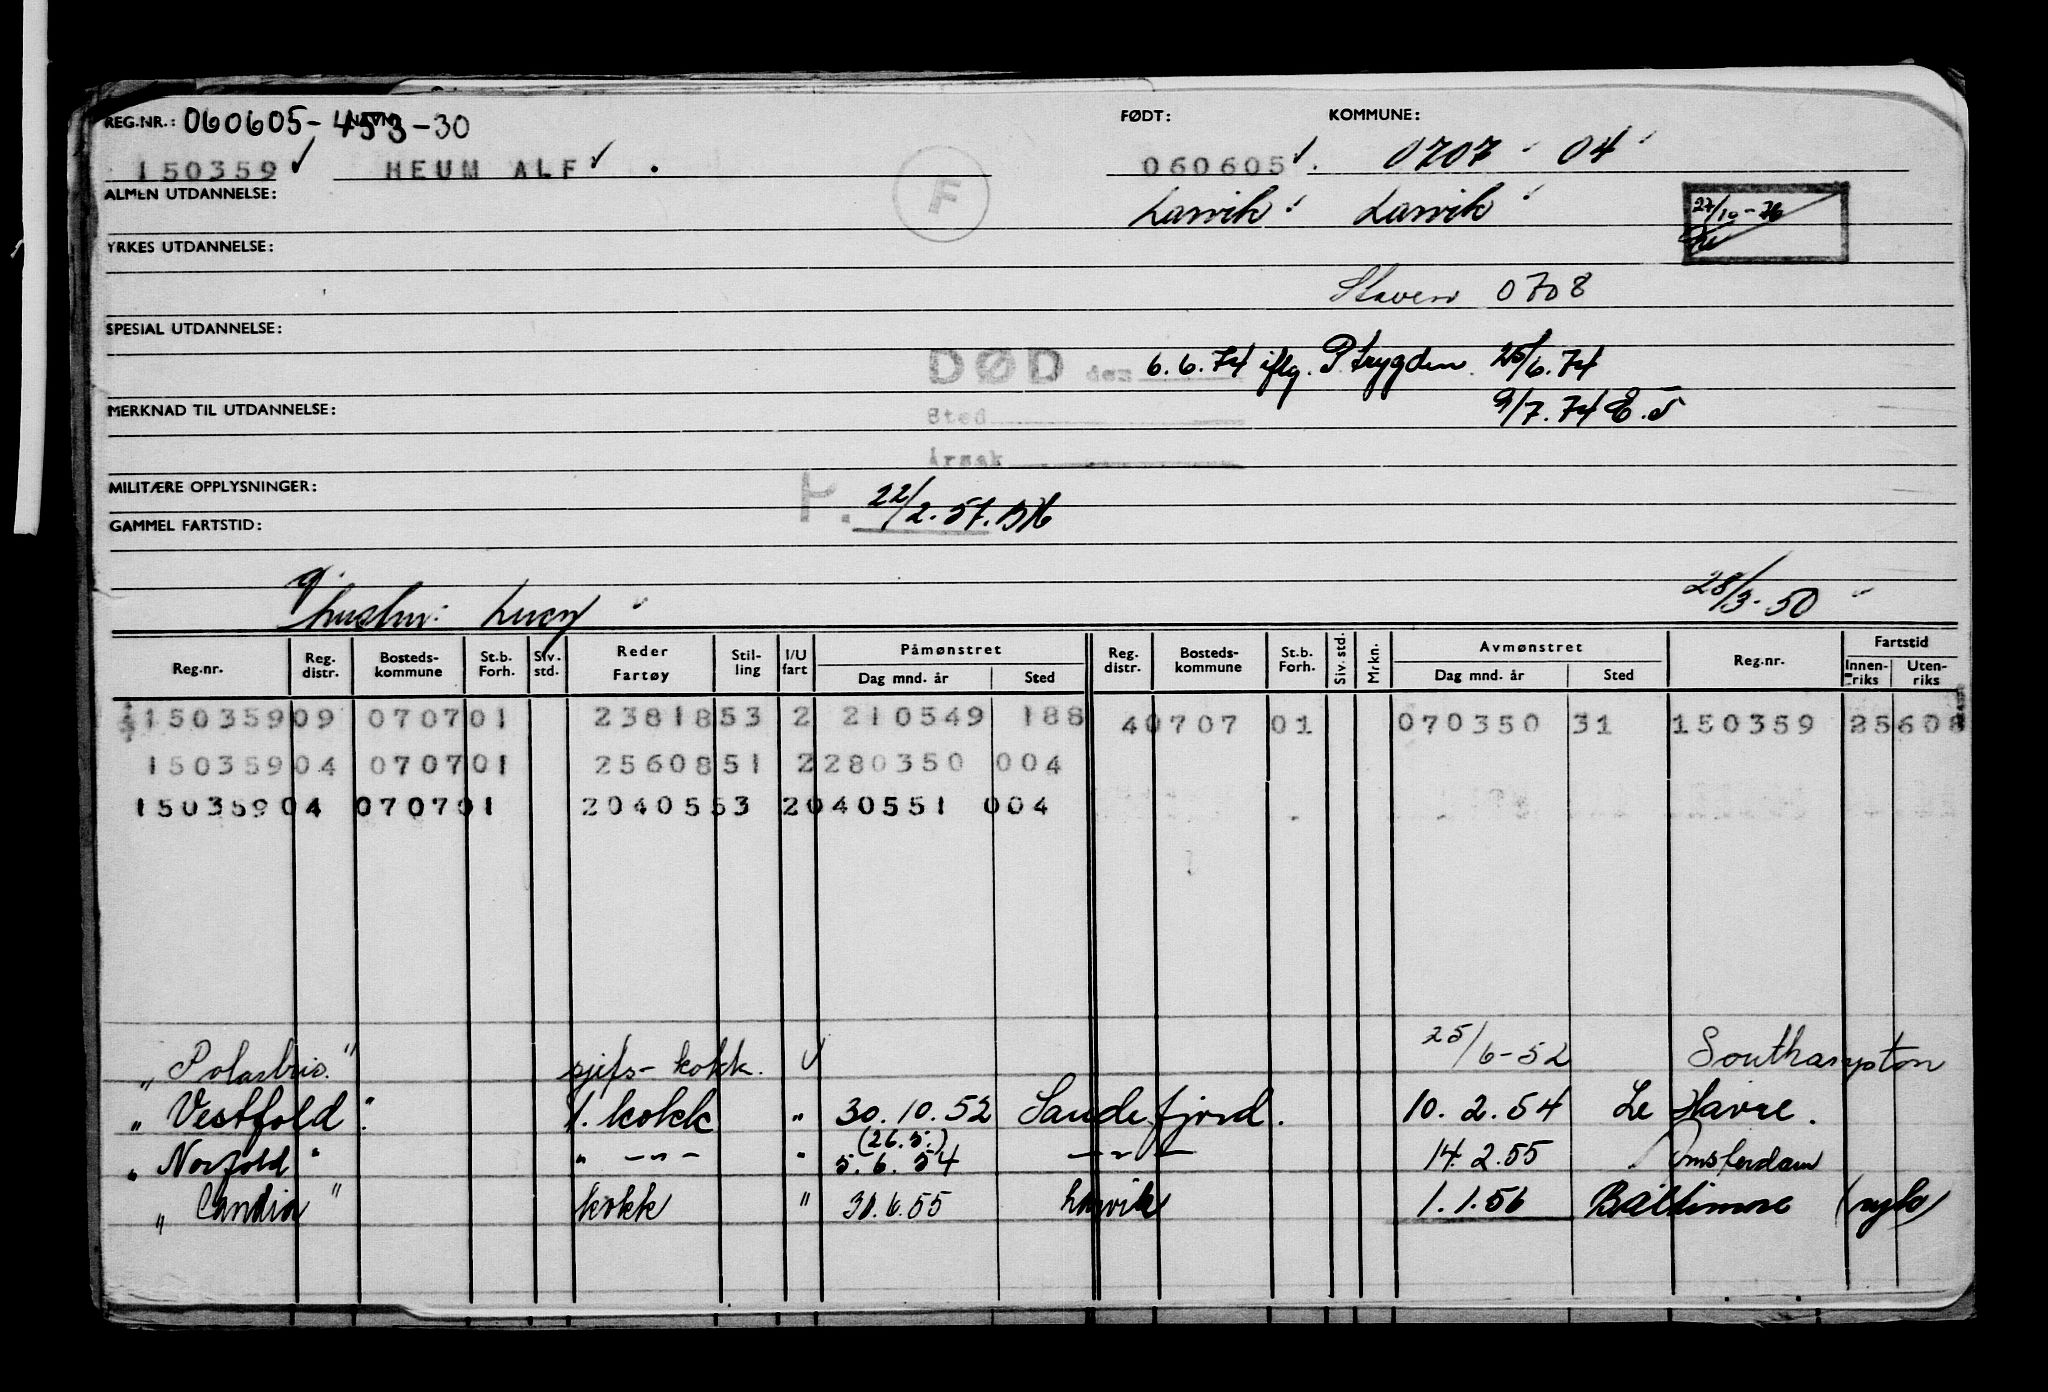 REG.NR.: 060605-45 3-30 FØDT: KOMMUNE:
150359 HEUM ALF . 060605 . 0707 04
ALMEN UTDANNELSE: F Larvik Larvik 27/10-76
YRKES UTDANNELSE:
Staven 0708
SPESIAL UTDANNELSE:
DØD den 6.6.74 iflg. P.trygden. 25/6.74
MERKNAD TIL UTDANNELSE: Sted 9/7.74
Årsak
MILITÆRE OPPLYSNINGER:
22/2.57.
GAMMEL FARTSTID:
g. hustru: Lucy 28/3-50
Reg.nr. Reg. distr. Bosteds-kommune St.b. Forh. Siv. std. Reder Fartøy Stil-ling I/U fart Påmønstret Dag mnd. år Sted Reg. distr. Bosteds-kommune St.b. Forh. Siv. std. Mrkn. Avmønstret Dag mnd. år Sted Reg.nr. Fartstid Innen-riks Uten-riks
15035909 070701 2381853 2 210549 188 40707 01 070350 31 150359 25608
15035904 070701 2560851 2280350 004
15035904 070701 2040553 2040551 004
"Polarbris" sjefs-kokk. U 25/6-52 Southampton
"Vestfold" 1. kokk " 30.10.52 Sandefjord. 10.2.54 Le Havre.
(26.5.)
"Norfold" " --- " 5.6.54 --- 14.2.55 Amsterdam
"Candia" kokk " 30.6.55 Larvik 1.1.56 Baltimore